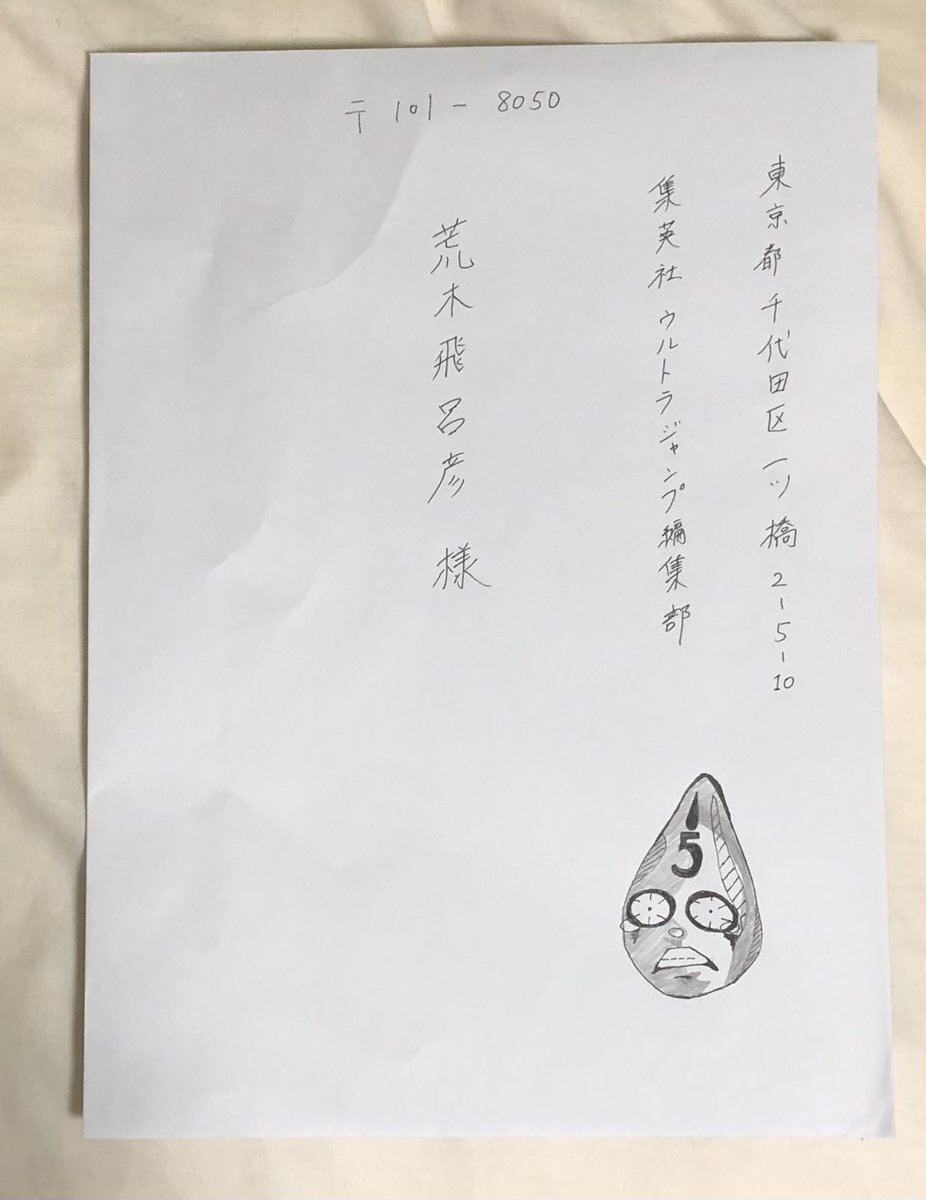 〒101-8050
東京都千代田区一ツ橋2-5-10
集英社 ウルトラジャンプ編集部
荒木飛呂彦 様
5